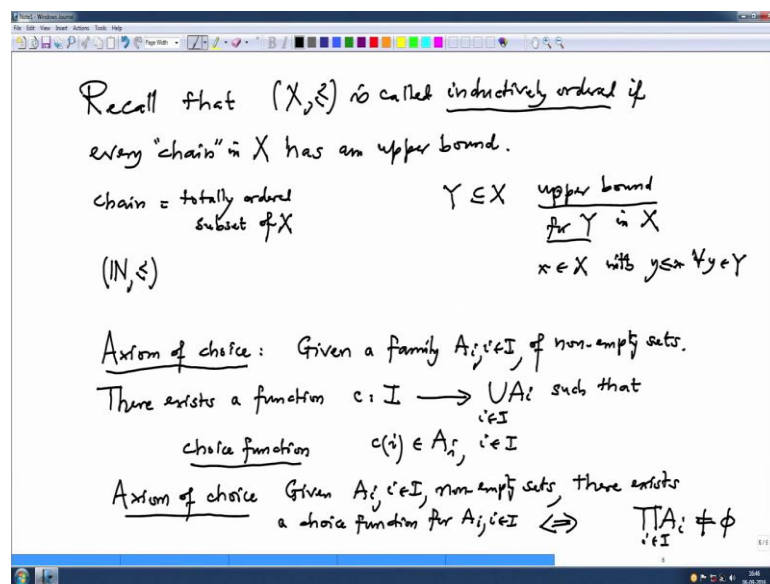 Note1 - Windows Journal
File Edit View Insert Actions Tools Help
Page Width
B I
Recall that (X, ≤) is called inductively ordered if
every "chain" in X has an upper bound.
chain = totally ordered subset of X
Y ⊆ X upper bound for Y in X
(ℕ, ≤)
x ∈ X with y ≤ x ∀ y ∈ Y
Axiom of choice: Given a family Aᵢ, i ∈ I, of non-empty sets.
There exists a function c: I ⟶ ⋃ Aᵢ such that
i ∈ I
choice function c(i) ∈ Aᵢ, i ∈ I
Axiom of choice Given Aᵢ, i ∈ I, non-empty sets, there exists
a choice function for Aᵢ, i ∈ I ⟺ ∏ Aᵢ ≠ ϕ
i ∈ I
16:46